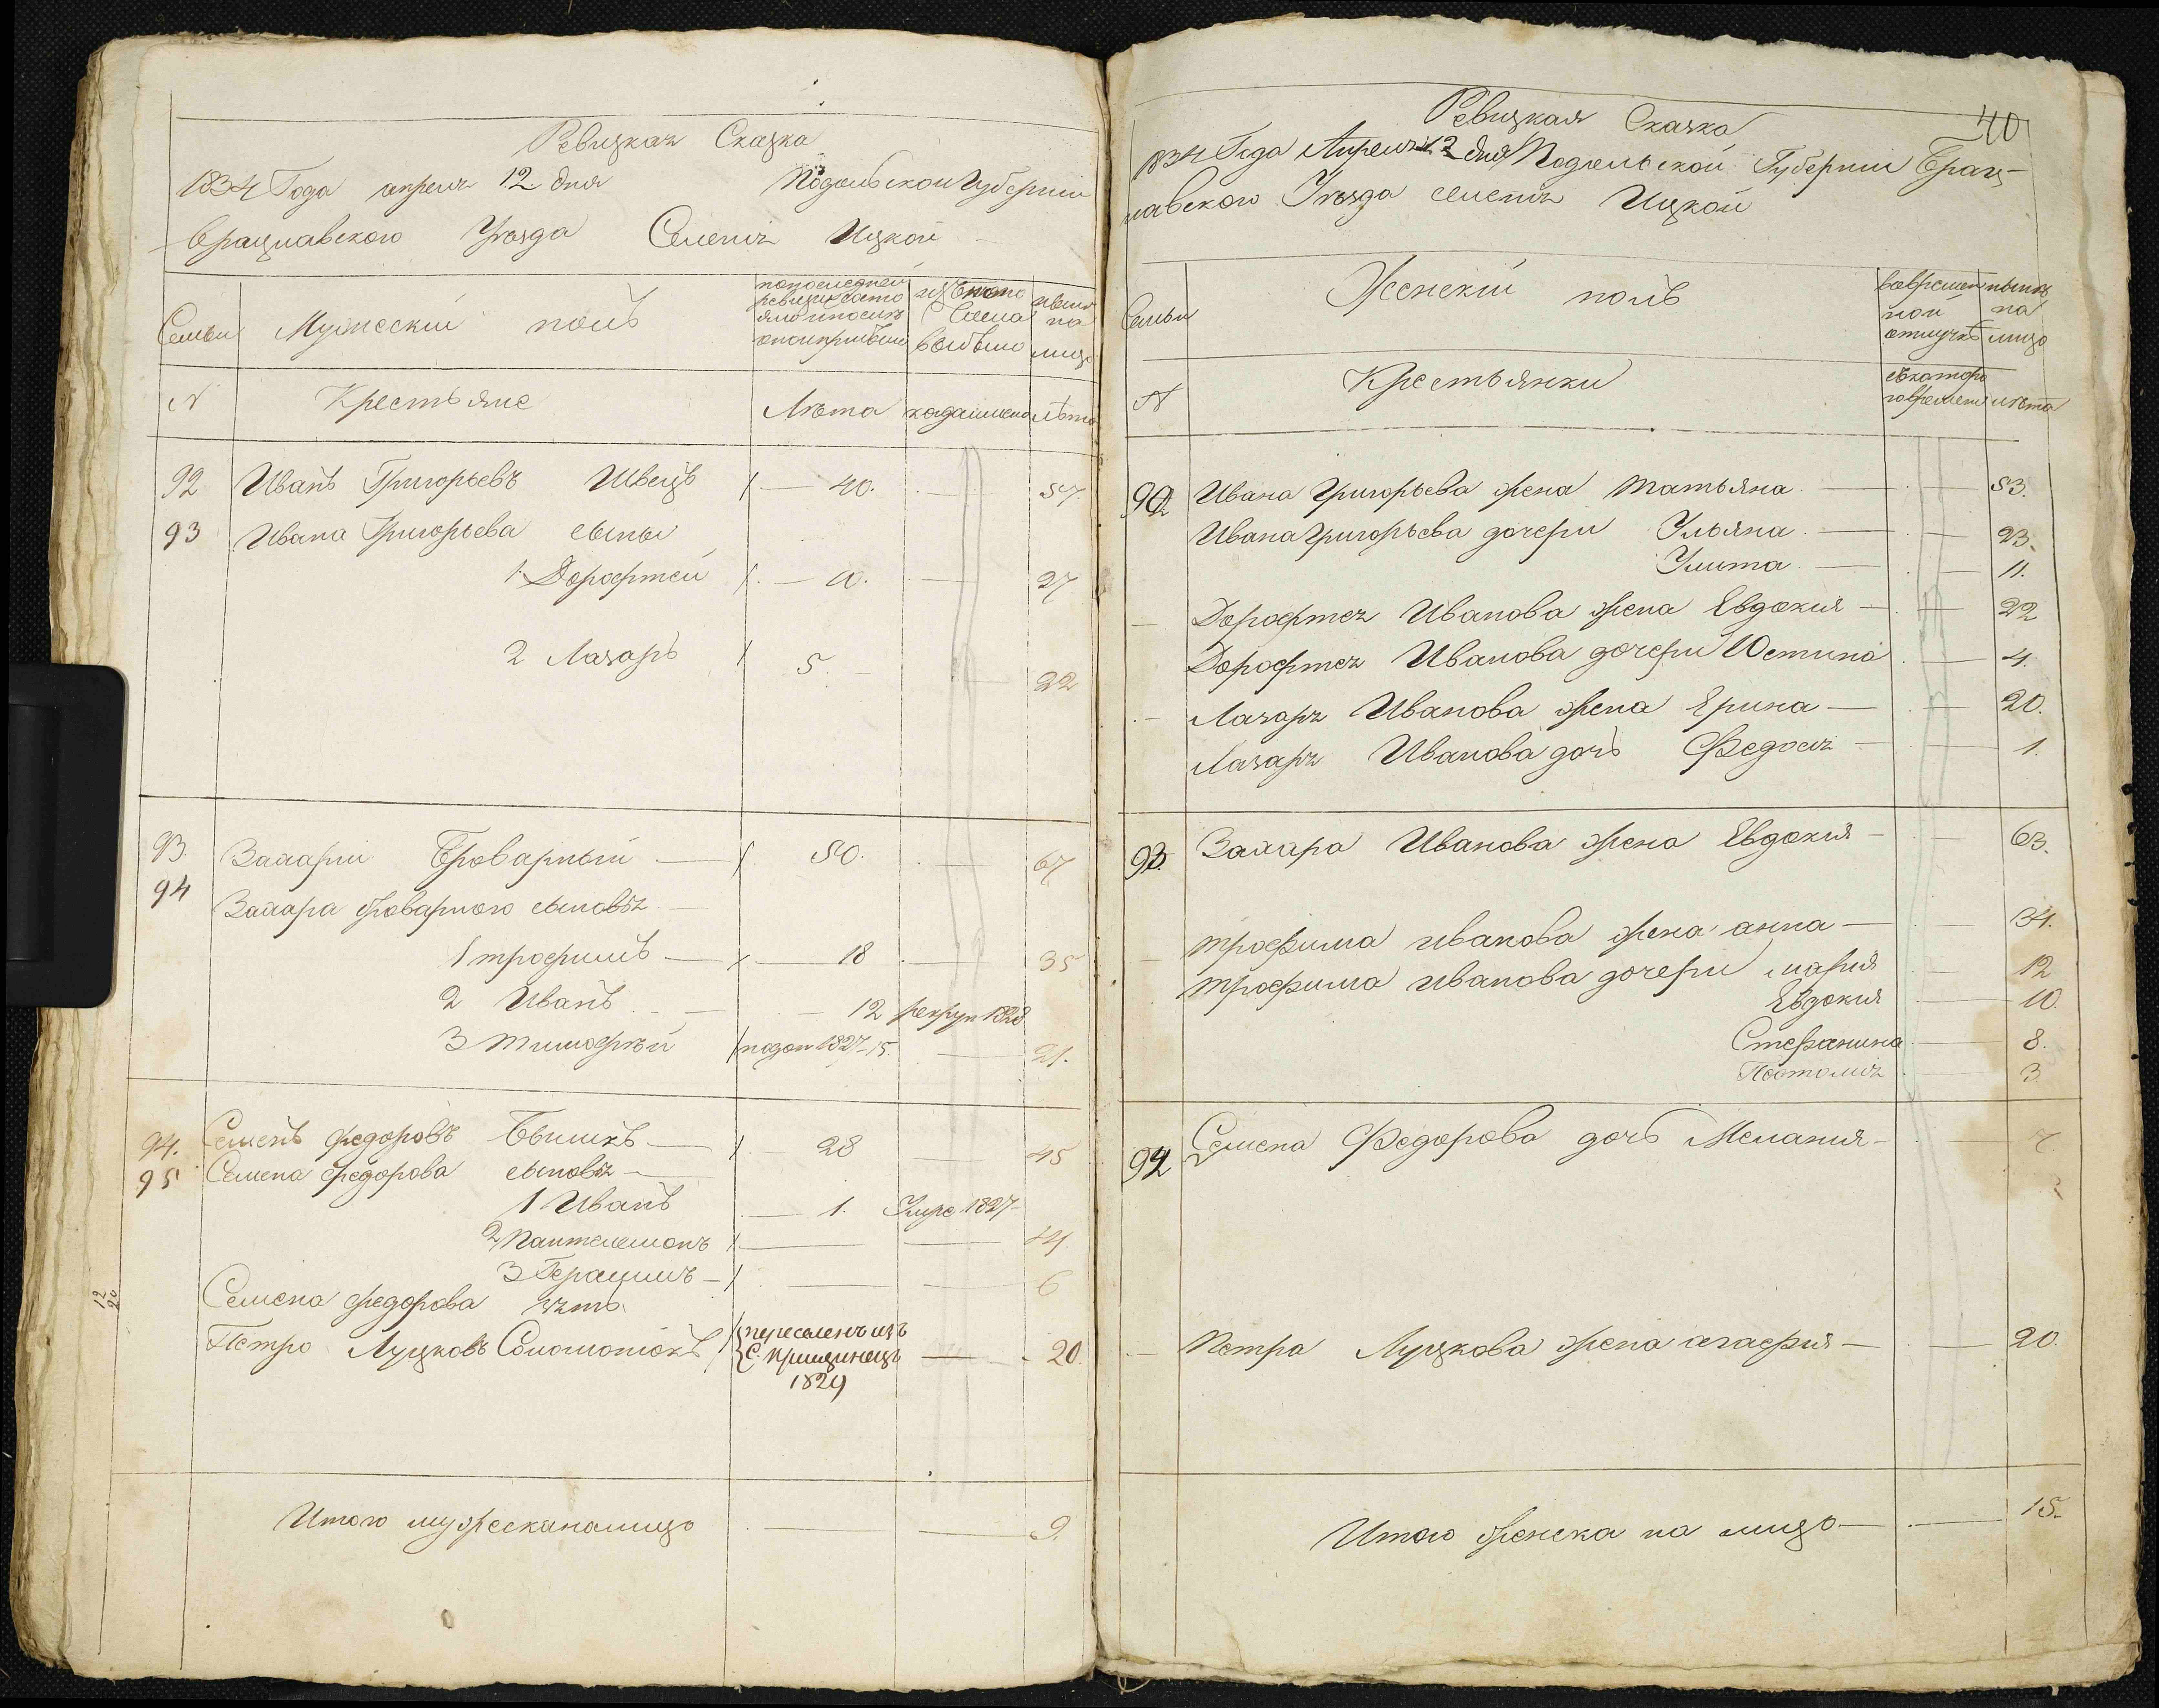 Ревизкая Сказка
1834 Года апреля 12 дня Подольской Губернии
Брацлавского Уѣзда Селенія Ицкой
Семьи Мужескій полъ
по последней ревизіи состояло и после оной прибыло
изъ того числа выбыло
ныне на лицо
N Крестьяне Лѣта когда имено лѣта
92 Иванъ Григорьевъ Швецъ 40. 57
93 Ивана Григорьева сыны
1. Дорофтей 10. 27
2 Лазарь 5. 22
93. Захарій Броварный 50. 67
94 Захара Броварного сыновья
1 трофимъ 18 35
2 Иванъ 12 рекрут 1828
3 Тимофѣй 1827 15. 21.
94. Семенъ Федоровъ 28 45
95 Семена Федорова сыновья
1 Иванъ 1. Умре 1827
2 Пантелемонъ 14
3 Герасимъ 6
Семена Федорова зять
Петро Луцковъ Соломонюкъ переселенъ изъ
С. 20
1829
12
20
Итого мужеска на лицо 9.
40
Ревизкая Сказка
1834 Года Апреля 12 дня Подольской Губерніи Брац-
лавского Уѣзда селенія Ицкой
Семьи Женскій полъ
во времен
ной
отлучкѣ
ныне
на
лицо
N Крестьянки
съ которо
го времени
лѣта
92 Ивана Григорьева жена Татьяна 53.
Ивана Григорьева дочери Ульяна 23.
Улита 11.
Дорофтея Иванова жена Евдокия 22
Дорофтея Иванова дочери Юстина 4.
Лазаря Иванова жена Ярина 20.
Лазаря Иванова дочь Федося 1.
93. Захара Иванова жена Евдокия 63.
трофима иванова жена анна 34.
трофима иванова дочери мария 12
Евдокия 10.
Стефанина 8.
3.
94 Семена Федорова дочь Мелания 7.
Петра Луцкова жена агафия 20.
Итого женска на лицо 15.